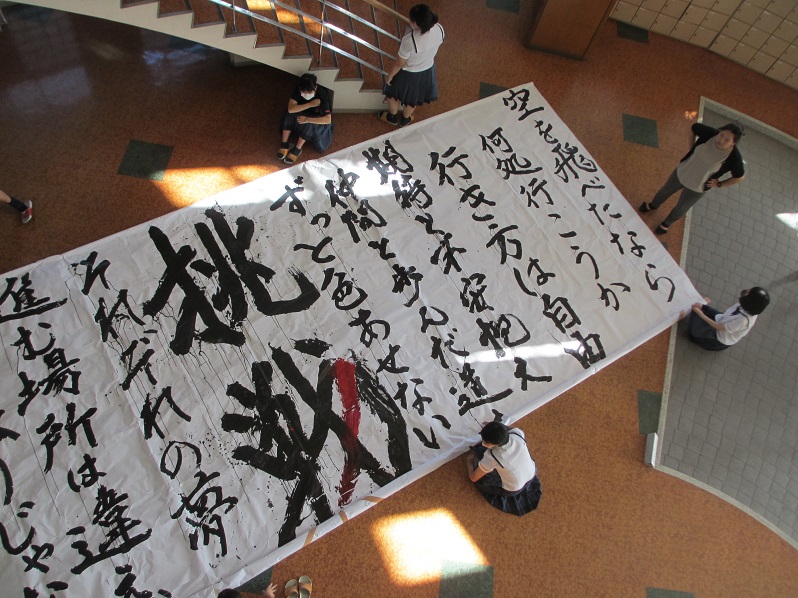 空を飛べたなら
何処行こうか
行き方は自由
期待と不安抱え
仲間と歩んだ道
ずっと色あせない
挑戦
それぞれの夢
進む場所は違え
じゃな